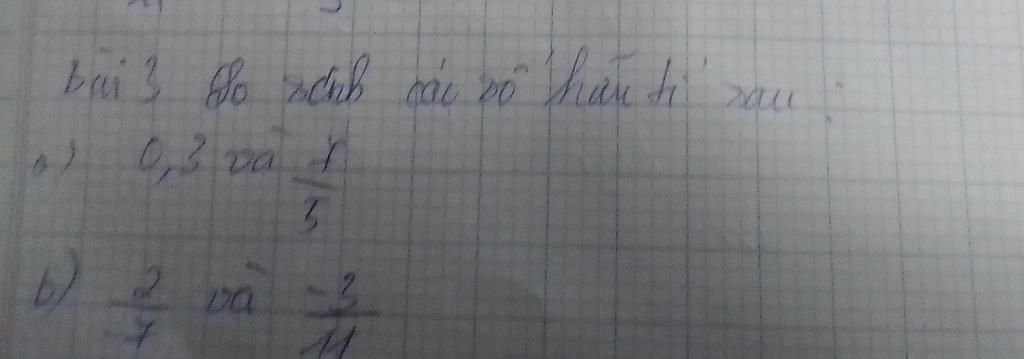 bài 3 So sánh các số hữu tỉ sau :
a) 0,3 và
b) 2/-7 và -3/11